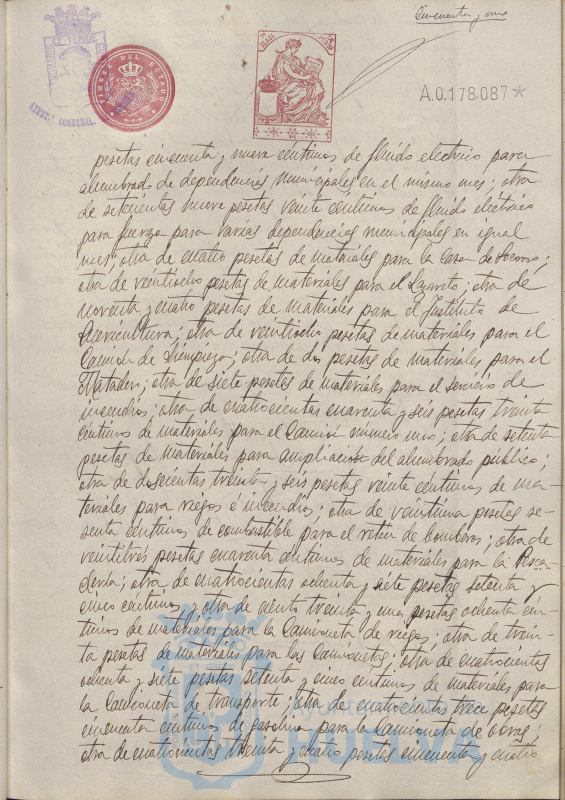 Cincuenta y uno
TIMBRE DEL ESTADO
A.0.178.087*
pesetas cincuenta y nueve centimos de fluido electrico para
alumbrado de dependencias municipales en el mismo mes; otra
de setecientas nueve pesetas veinte centimos de fluido eléctrico
para fuerza para varias dependencias municipales en igual
mes; otra de cuatro pesetas de materiales para la Casa de Socorro;
otra de veintiocho pesetas de materiales para el Lazareto; otra de
noventa y cuatro pesetas de materiales para el Instituto de
; otra de veintiocho pesetas de materiales para el
Camión de Limpieza; otra de dos pesetas de materiales para el
Matadero; otra de siete pesetas de materiales para el servicio de
incendios; otra de cuatrocientas cuarenta y seis pesetas treinta
centimos de materiales para el Camión número uno; otra de setenta
pesetas de materiales para ampliación del alumbrado público;
otra de doscientas treinta y seis pesetas veinte centimos de ma-
teriales para riegos é incendios; otra de veintiuna pesetas se-
senta centimos de combustible para el retén de bomberos; otra de
veintitres pesetas cuarenta centimos de materiales para la Pesca
dería; otra de cuatrocientas ochenta y siete pesetas setenta y
cinco centimos y otra de ciento treinta y una pesetas ochenta cen-
timos de materiales para la Camioneta de riegos; otra de trein-
ta pesetas de materiales para las Camionetas; otra de cuatrocientas
ochenta y siete pesetas setenta y cinco centimos de materiales para
la Camioneta de transporte; otra de cuatrocientas trece pesetas
cincuenta centimos de gasolina para la Camioneta de obras;
otra de cuatrocientas treinta y cuatro pesetas cincuenta y cuatro